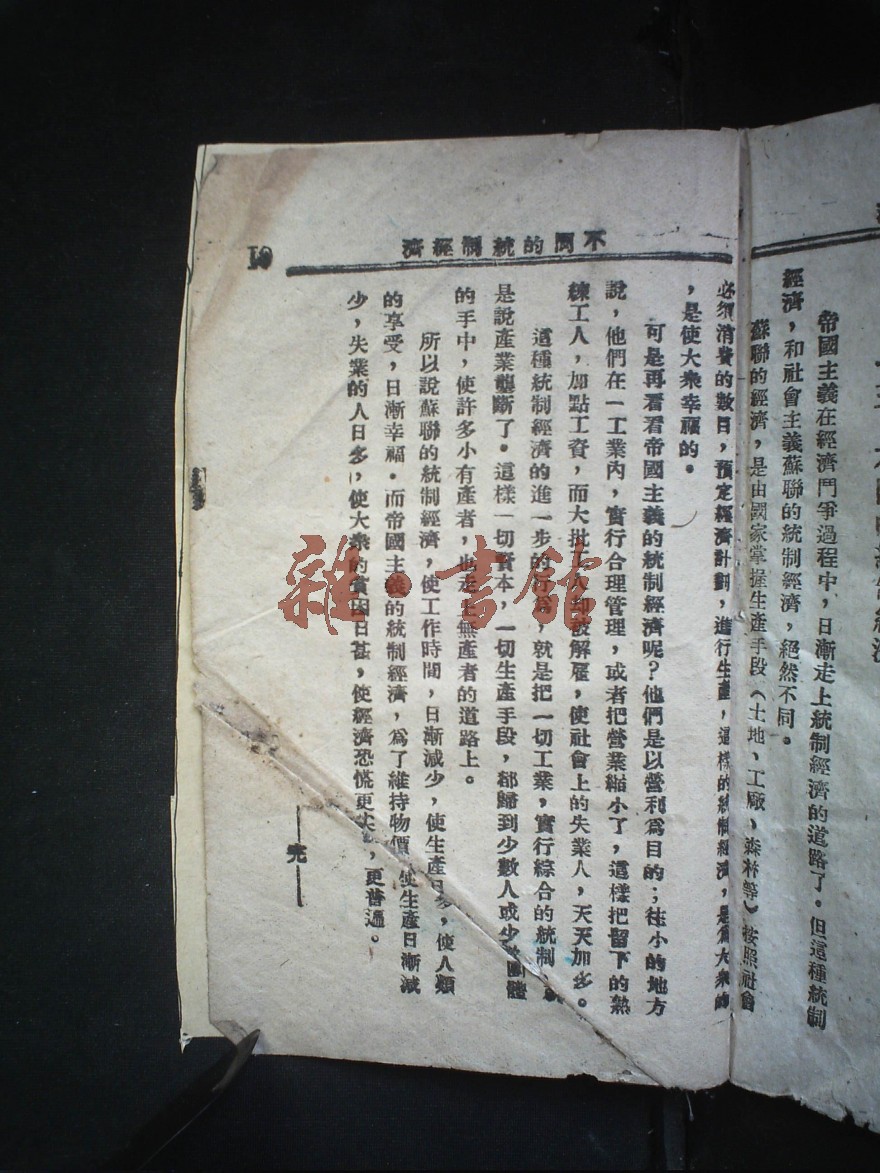 帝國主義在經濟鬥爭過程中，日漸走上統制經濟的道路了。但這種統制
經濟，和社會主義蘇聯的統制經濟，絕然不同。
蘇聯的經濟，是由國家掌握生產手段（土地、工廠、森林等）按照社會
必須消費的數目，預定經濟計劃，進行生產，這樣的統制經濟，是為大衆的
，是使大衆幸福的。
不同的統制經濟
10
可是再看看帝國主義的統制經濟呢？他們是以營利爲目的；往小的地方
說，他們在一工業內，實行合理管理，或者把營業縮小了，這樣把留下的熟
練工人，加點工資，而大批工人却被解雇，使社會上的失業人，天天加多。
這種統制經濟的進一步的行爲，就是把一切工業，實行綜合的統制，就
是說產業壟斷了。這樣一切資本，一切生產手段，都歸到少數人或少數團體
的手中，使許多小有產者，也走上無產者的道路上。
所以說蘇聯的統制經濟，使工作時間，日漸減少，使生產日多，使人類
的享受，日漸幸福。而帝國主義的統制經濟，爲了維持物價，使生產日漸減
少，失業的人日多，使大衆的貧困日甚，使經濟恐慌更，更普遍。
—完—
雜·書館